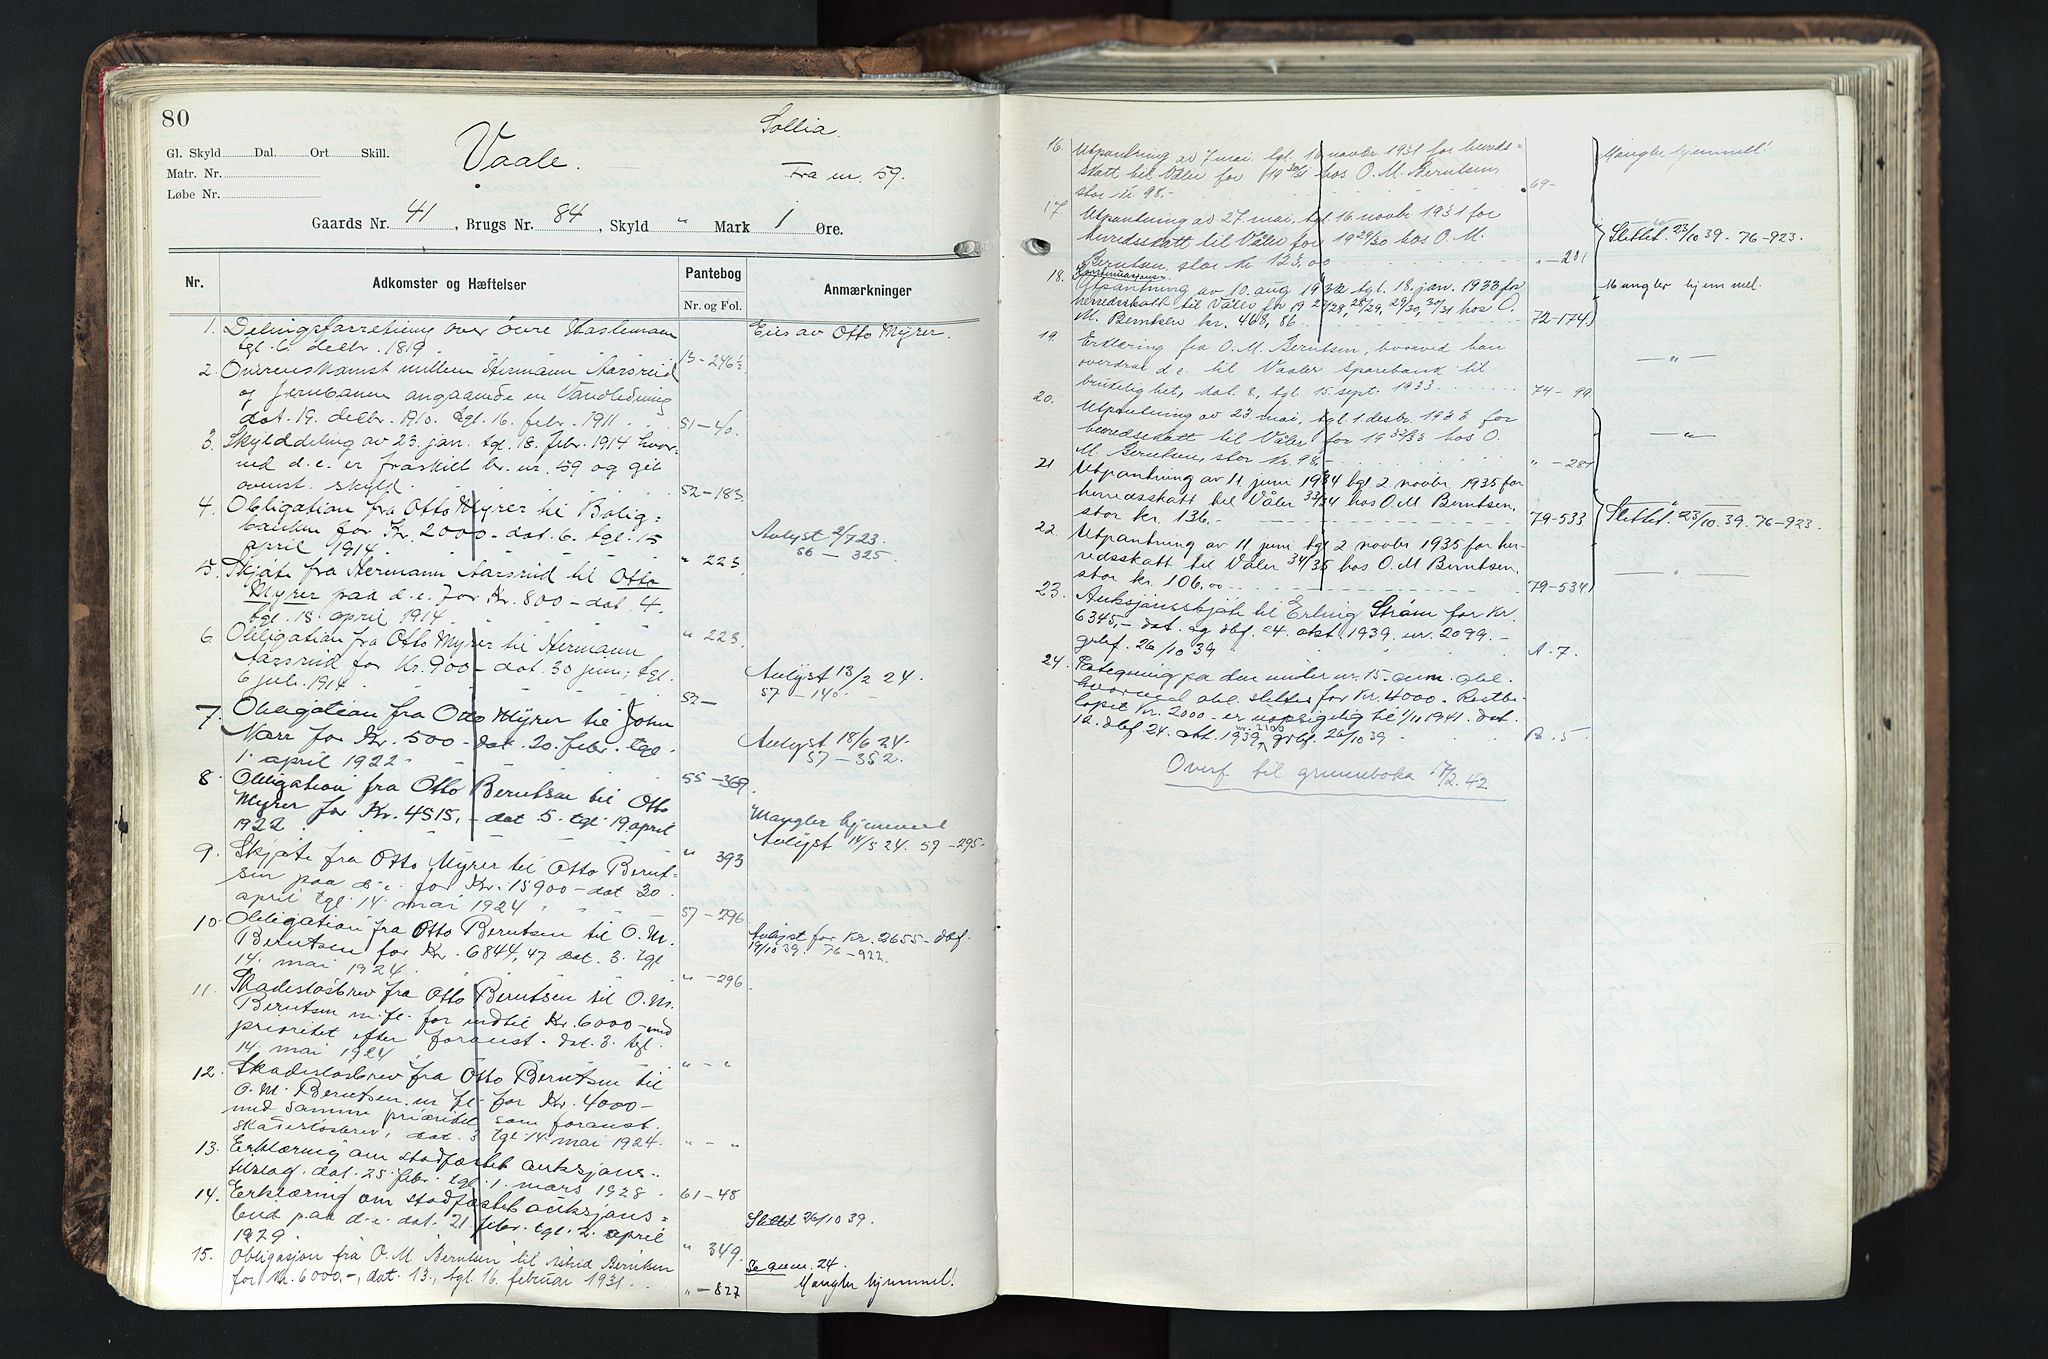 80
Gl. Skyld Dal. Ort Skill.
Matr. Nr.
Løbe Nr.
Vaale.
Sollia.
Fra nr. 59.
Gaards Nr. 41, Brugs Nr. 84, Skyld " Mark 1 Øre.
Nr. Adkomster og Hæftelser Pantebog Nr. og Fol. Anmærkninger
1. Delingsforretning over övre Haslemoen Eies av Otto Myrer.
tgl. 6. decbr. 1819. 13-246½
2. Overenskomst mellem Hermann Aarsrud
og Jernbanen angaaende en Vandledning
dat. 19. decbr. 1910. tgl. 16. febr. 1911. 51-40.
3. Skylddeling av 23. jan. tgl. 18. febr. 1914 hvor-
ved d.e. er fraskilt br. nr. 59 og git
ovenst. skyld. 52-183.
4. Obligation fra Otto Myrer til Bolig=
banken for Kr. 2000- dat. 6. tgl. 15 Avlyst 2/7 23.
april 1914. " 223. 56-325
5. Skjøte fra Hermann Aarsrud til Otto
Myrer paa d.e. for Kr. 800- dat. 4.
tgl. 15. april 1914. " 223.
6. Obligation fra Otto Myrer til Hermann
Aarsrud for Kr. 900- dat. 30 juni, tgl. Avlyst 13/2 24.
6 juli 1914. 52- 57-140.
7. Obligation fra Otto Myrer til John
Narr for Kr. 500- dat. 20. febr. tgl. Avlyst 18/6 24.
1. april 1922 55-367. 57-352.
8. Obligation fra Otto Berntsen til Otto
Myrer for Kr. 4515,- dat. 5. tgl. 19 april Mangler hjemmel
1922. " 393 Avlyst 14/5 24. 57-295.
9. Skjøte fra Otto Myrer til Otto Bernt=
sen paa d.e. for Kr. 15900- dat 30
april tgl. 14. mai 1924 57-296
10. Obligation fra Otto Berntsen til O.M.
Berntsen for Kr. 6844,47 dat. 3. tgl Avlyst for Kr. 2655- dbf.
14. mai 1924. "-296 19/10 39. 76-922.
11. Skadesløsbrev fra Otto Berntsen til O.M.
Berntsen m. fl. for indtil Kr. 6000- med
prioritet efter foranst. dat. 3. tgl.
14. mai 1924 " - "
12. Skadesløsbrev fra Otto Berntsen til
O.M. Berntsen m fl. for Kr. 4000-
med samme prioritet som foranst.
skadesløsbrev, dat. 3 tgl. 14. mai 1924. " - "
13. Erklæring om stadfæstet auksjons-
tilslag. dat. 25 febr. tgl. 1. mars 1928. 61-48
14. Erklæring om stadfæstet auksjons=
bud paa d.e. dat. 21 febr. tgl. 2. april Slettet 26/10 39.
1929. " 349.
15. Obligasjon fra O. M. Berntsen til Astrid Berntsen Se anm. 24.
for kr. 6000.-, dat. 13., tgl. 16. februar 1931. "-827 Mangler hjemmel!
16. Utpantning av 7 mai tgl. 16 novbr. 1931 for hereds= Mangler hjemmel!
skatt til Våler for 19 30/31 hos O. M. Berntsen,
stor kr. 98.- 69-
17. Utpantning av 27. mai, tgl 16 novbr 1931 for
herredsskatt til Våler for 19 29/30 hos O. M. Slettet 23/10 39 - 76-923.
Berntsen, stor kr. 123,00 "-201
18. Kontinuasjons-
Utpantning av 10. aug. 1932 tgl. 18. jan. 1933 for Mangler hjemmel.
herredsskatt til Våler for 19 27/28, 28/29, 29/30, 30/31 hos O.
M. Berntsen kr. 468,86. 72-174.
19. Erklæring fra O. M. Berntsen, hvorved han
overdrar d.e. til Vaaler Sparebank til — " —
brukelighet, dat. 8, tgl. 15. sept. 1933. 74-99
20. Utpantning av 23. mai, tgl. 1. desbr. 1933 for
herredsskatt til Våler for 19 32/33 hos O. — " —
M. Berntsen, stor kr. 98,- "-281
21 Utpantning av 11 juni 1934 tgl 2 novbr. 1935 for
herredsskatt til Våler 33/34 hos O. M. Berntsen,
stor kr. 136.- 79-533 Slettet 23/10. 39. 76-923.
22. Utpantning av 11 juni tgl 2 novbr. 1935 for her-
redsskatt til Våler 34/35 hos O. M Berntsen,
stor kr. 106.00 79-534 — " —
23. Auksjonsskjøte til Erling Strøm for Kr.
6345,- dat. og dbf. 24. okt. 1939. nr. 2099.-
grbf. 26/10 39 A.7.
24. Påtegning på den under nr. 15. anm. obl.
hvorved obl. slettes for Kr. 4000. Restbe-
løpet Kr. 2000- er uopsigelig til 1/11 1941. dat.
12. dbf 24. okt. 1939 nr. 2100 grbf. 26/10 39 B.5.
Overf til grunnboka 17/2. 42